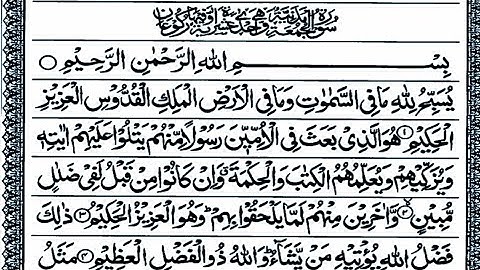 سُوْرَةُ الْجُمُعَةِ مَدَنِيَّةٌ وَّهِيَ اِحْدٰى عَشْرَةَ اٰيَةً وَّفِيْهَا رُكُوْعَانِ
بِسْمِ اللهِ الرَّحْمٰنِ الرَّحِيْمِ ○
يُسَبِّحُ لِلّٰهِ مَا فِى السَّمٰوٰتِ وَمَا فِى الْاَرْضِ الْمَلِكِ الْقُدُّوْسِ الْعَزِيْزِ
الْحَكِيْمِ ۝١ هُوَ الَّذِىْ بَعَثَ فِى الْاُمِّيّٖنَ رَسُوْلًا مِّنْهُمْ يَتْلُوْا عَلَيْهِمْ اٰيٰتِهٖ
وَيُزَكِّيْهِمْ وَيُعَلِّمُهُمُ الْكِتٰبَ وَالْحِكْمَةَ ۗ وَاِنْ كَانُوْا مِنْ قَبْلُ لَفِىْ ضَلٰلٍ
مُّبِيْنٍ ۝٢ وَّاٰخَرِيْنَ مِنْهُمْ لَمَّا يَلْحَقُوْا بِهِمْ ۗ وَهُوَ الْعَزِيْزُ الْحَكِيْمُ ۝٣ ذٰلِكَ
فَضْلُ اللهِ يُؤْتِيْهِ مَنْ يَّشَآءُ ۗ وَاللهُ ذُو الْفَضْلِ الْعَظِيْمِ ۝٤ مَثَلُ